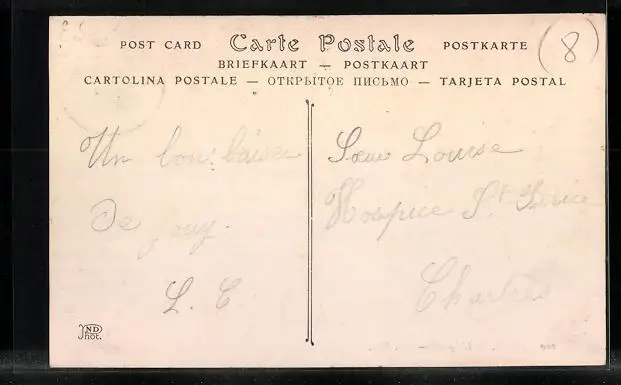 POST CARD Carte Postale POSTKARTE
BRIEFKAART — POSTKAART
CARTOLINA POSTALE — ОТКРЫТОЕ ПИСЬМО — TARJETA POSTAL
8
Un bon baiser
de Jouy.
L. C
Sœur Louise
Hospice St Brice
Chartres
ND
Phot.